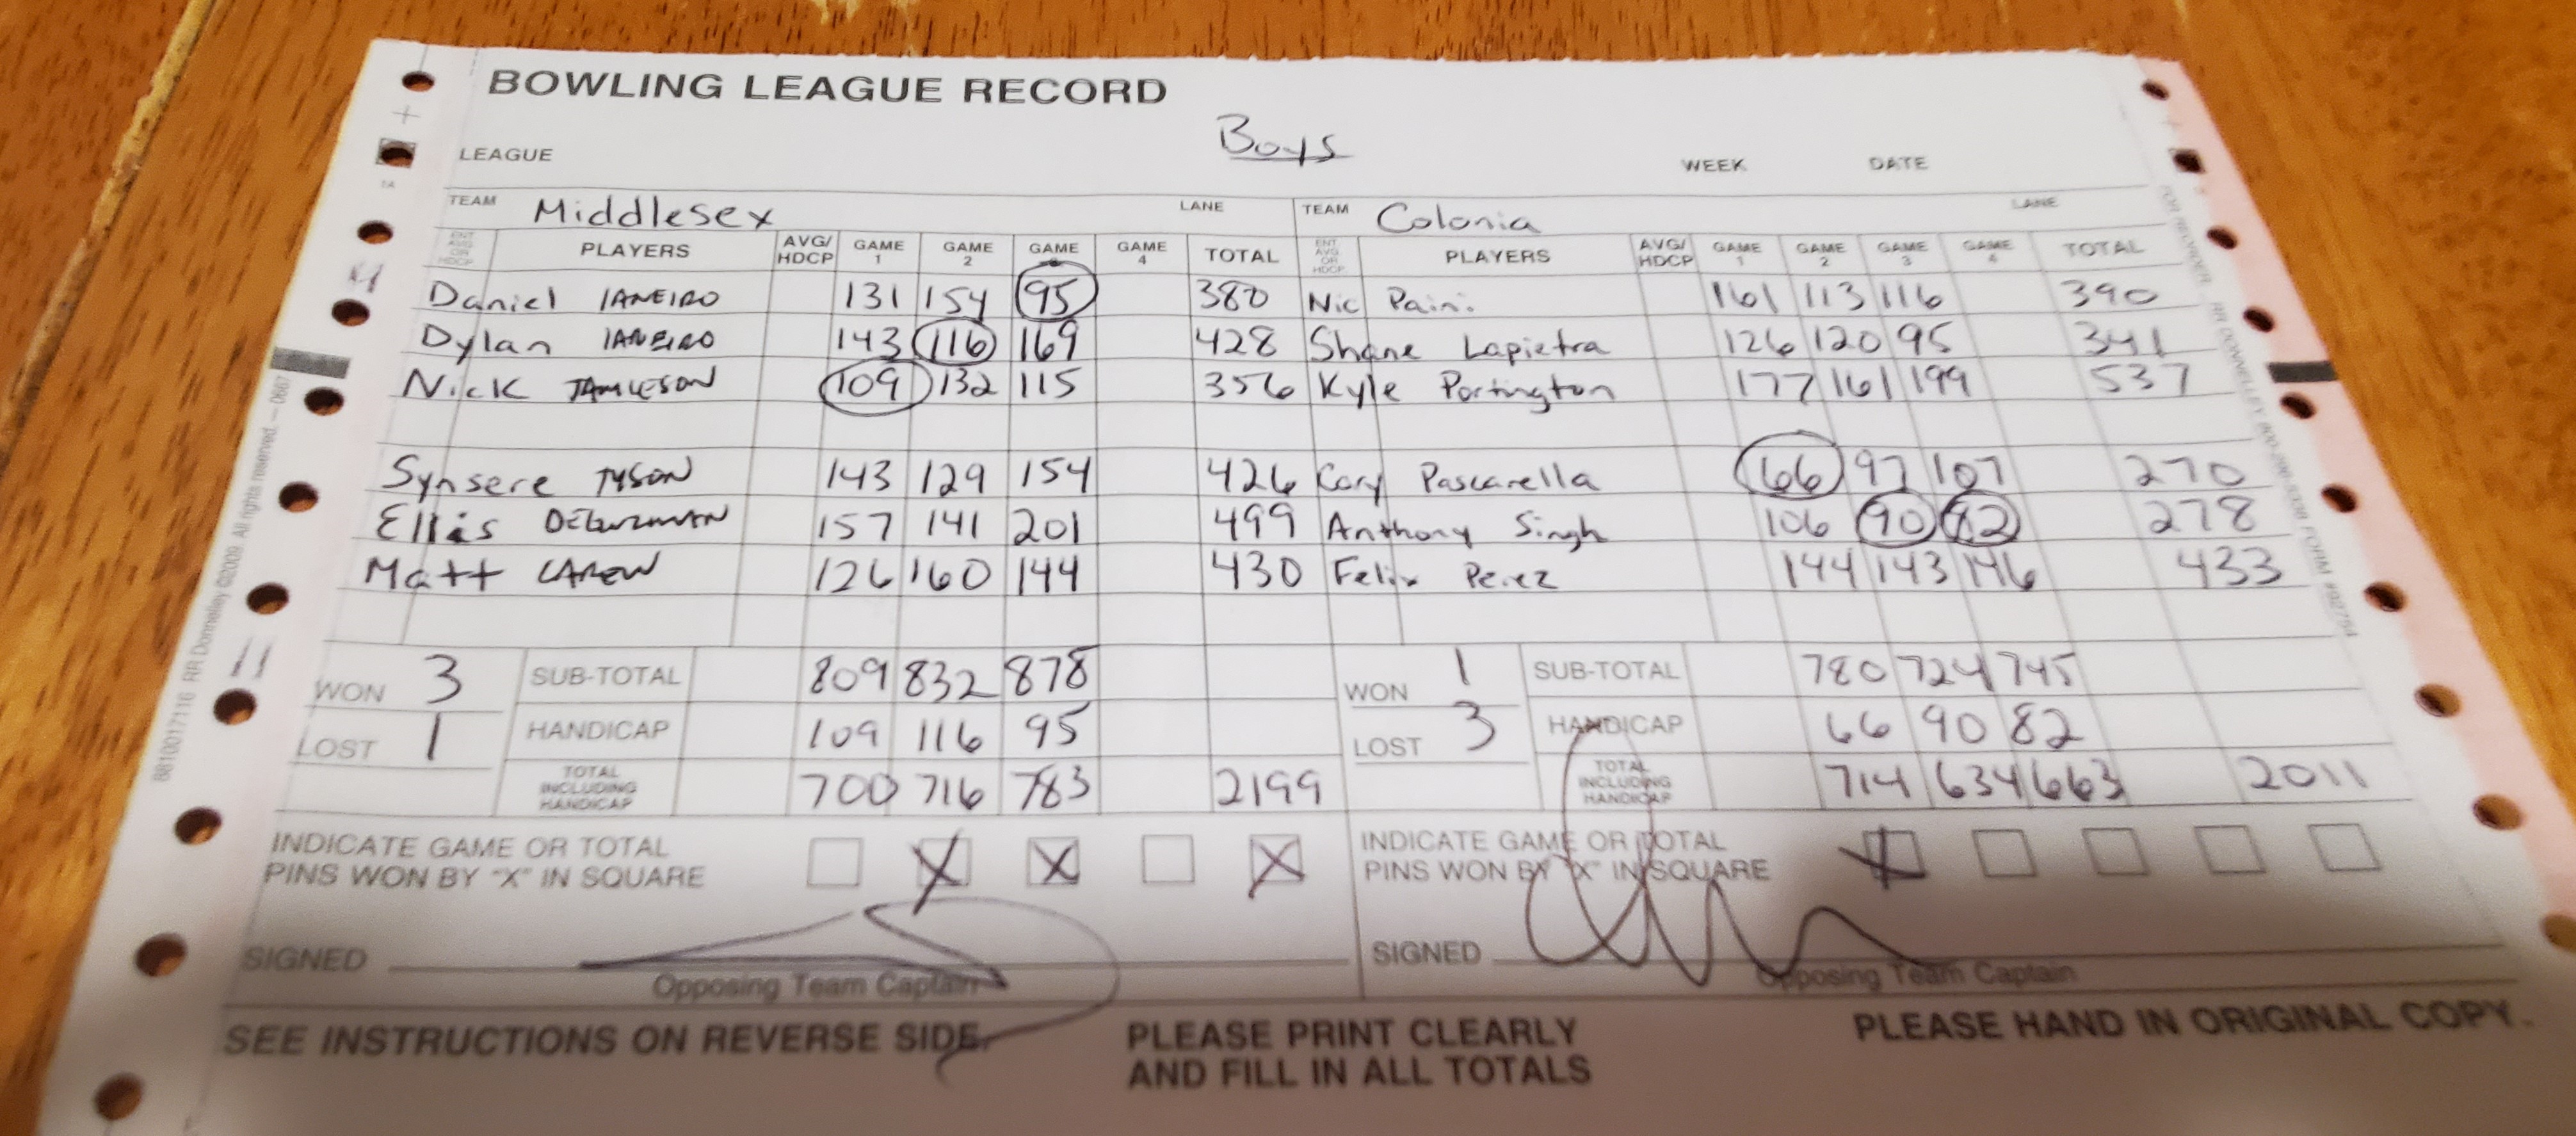 BOWLING LEAGUE RECORD
Boys
LEAGUE WEEK DATE
TEAM Middlesex LANE TEAM Colonia LANE
ENT AVG OR HDCP PLAYERS AVG/HDCP GAME 1 GAME 2 GAME GAME 4 TOTAL ENT AVG OR HDCP PLAYERS AVG/HDCP GAME 1 GAME 2 GAME 3 GAME 4 TOTAL
Daniel IANEIRO 131 154 95 380 Nic Paini 161 113 116 390
Dylan IANEIRO 143 116 169 428 Shane Lapietra 126 120 95 341
Nick JAMIESON 109 132 115 356 Kyle Partington 177 161 199 537
Synsere TYSON 143 129 154 426 Cory Pascarella 66 97 107 270
Ellis DEGUZMAN 157 141 201 499 Anthony Singh 106 90 82 278
Matt CAREW 126 160 144 430 Felix Perez 144 143 146 433
WON 3 SUB-TOTAL 809 832 878 WON 1 SUB-TOTAL 780 724 745
LOST 1 HANDICAP 109 116 95 LOST 3 HANDICAP 66 90 82
TOTAL INCLUDING HANDICAP 700 716 783 2199 TOTAL INCLUDING HANDICAP 714 634 663 2011
INDICATE GAME OR TOTAL PINS WON BY "X" IN SQUARE X X X INDICATE GAME OR TOTAL PINS WON BY "X" IN SQUARE X
SIGNED SIGNED
Opposing Team Captain Opposing Team Captain
SEE INSTRUCTIONS ON REVERSE SIDE. PLEASE PRINT CLEARLY AND FILL IN ALL TOTALS PLEASE HAND IN ORIGINAL COPY.
RR Donnelley ©2009. All rights reserved. – 0667
FOR REORDER RR DONNELLEY 800-296-2008 FORM #92754